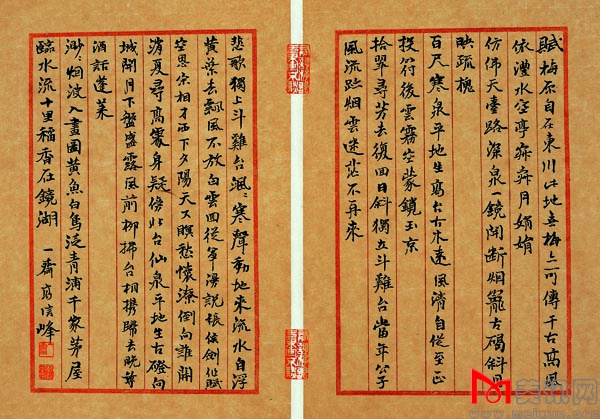 賦梅原自在東川此地無梅亦可傳千古高臺
依澧水空亭舞舞月娟娟
仿佛天臺路深泉一鏡開斷烟籠古碣斜日
映疏槐
百尺寒泉平地生高台古木遠風清自從至正
投符後雲霧空蒙鎖玉京
拾翠尋芳去復回日斜獨立斗雞台當年公子
風流跡烟雲迷茫不再來
悲歌獨上斗雞台颯颯寒聲動地來流水自浮
黄葉去飄風不放白雲回從軍漫說張儀劍作賦
空思宋相才西下夕陽天又暝愁懷潦倒向誰開
消夏尋高處身疑傍北台仙泉平地生古磴向
城開月下盤盛露風前柳拂台相攜歸去晚尊
酒話蓬萊
渺渺烟波入畫圖黄魚白鳥泛青浦千家茅屋
臨水流十里稻香在鏡湖 一齋 高信峰
美术网